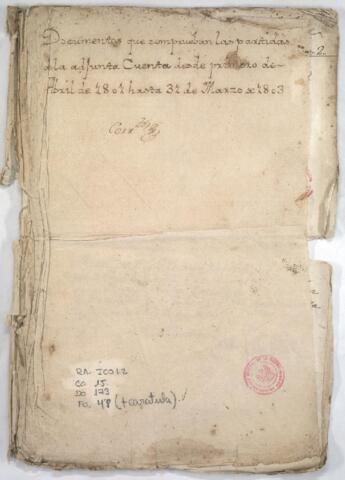 Documentos que comprueban las partidas
de la adjunta Cuenta desde primero de
Abril de 1801 hasta 31 de Marzo de 1803
2.
CO 15
DO 173
Fo. 48 (+caratula)